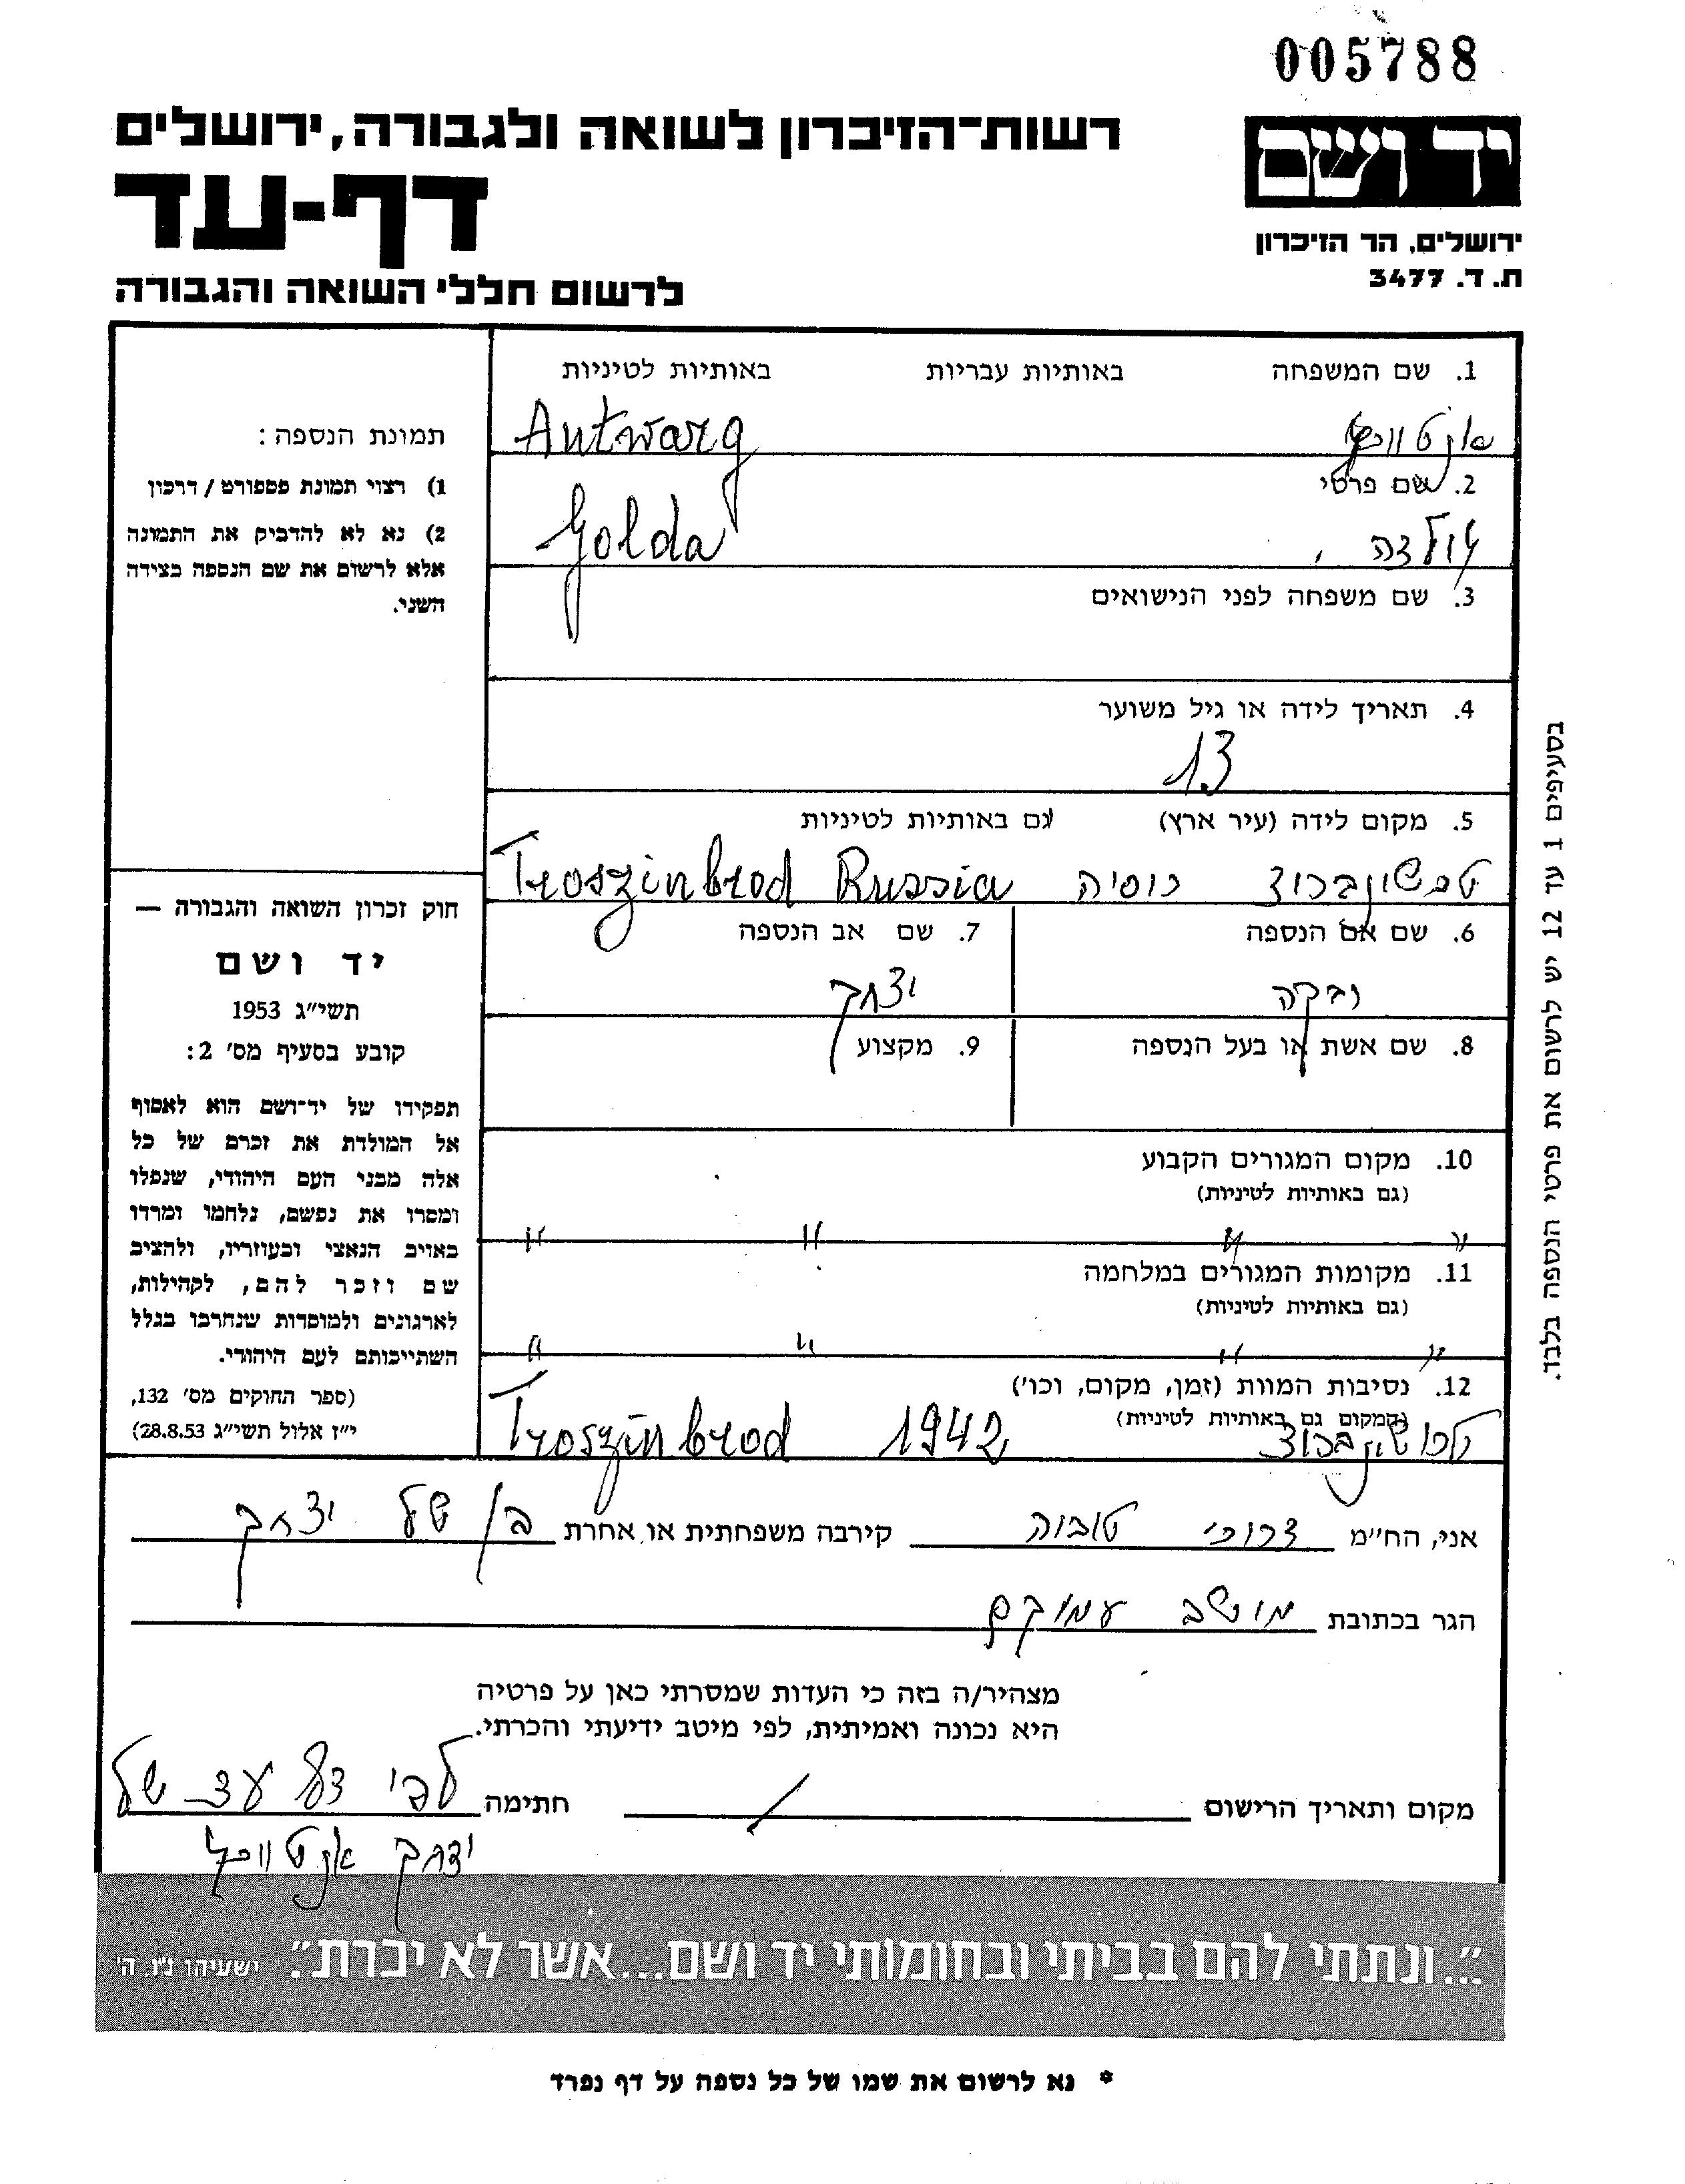 005788
יד ושם
ירושלים, הר הזיכרון
ת. ד. 3477
רשות־הזיכרון לשואה ולגבורה, ירושלים
דף-עד
לרשום חללי השואה והגבורה
1. שם המשפחה באותיות עבריות באותיות לטיניות
אנטוורג Antwarg
2. שם פרטי
גולדה Golda
3. שם משפחה לפני הנישואים
4. תאריך לידה או גיל משוער
13
5. מקום לידה (עיר ארץ) גם באותיות לטיניות
טרושינברוד רוסיה Troszinbrod Russia
6. שם אם הנספה 7. שם אב הנספה
רבקה יצחק
8. שם אשת או בעל הנספה 9. מקצוע
10. מקום המגורים הקבוע
(גם באותיות לטיניות)
" " " "
11. מקומות המגורים במלחמה
(גם באותיות לטיניות)
" " " "
12. נסיבות המוות (זמן, מקום, וכו')
(המקום גם באותיות לטיניות)
טרושינברוד 1942 Troszinbrod
תמונת הנספה:
1) רצוי תמונת פספורט / דרכון
2) נא לא להדביק את התמונה
אלא לרשום את שם הנספה בצידה
השני.
חוק זכרון השואה והגבורה —
יד ושם
תשי"ג 1953
קובע בסעיף מס' 2:
תפקידו של יד־ושם הוא לאסוף
אל המולדת את זכרם של כל
אלה מבני העם היהודי, שנפלו
ומסרו את נפשם, נלחמו ומרדו
באויב הנאצי ובעוזריו, ולהציב
שם וזכר להם, לקהילות,
לארגונים ולמוסדות שנחרבו בגלל
השתייכותם לעם היהודי.
(ספר החוקים מס' 132,
י"ז אלול תשי"ג 28.8.53)
בסעיפים 1 עד 12 יש לרשום את פרטי הנספה בלבד.
אני, הח"מ דרורי טוביה קירבה משפחתית או אחרת בן של יצחק
הגר בכתובת מושב עמוקה
מצהיר/ה בזה כי העדות שמסרתי כאן על פרטיה
היא נכונה ואמיתית, לפי מיטב ידיעתי והכרתי.
מקום ותאריך הרישום / חתימה לפי דף עד של
יצחק אנטוורג
"...ונתתי להם בביתי ובחומותי יד ושם...אשר לא יכרת". ישעיהו נ"ו, ה'
* נא לרשום את שמו של כל נספה על דף נפרד